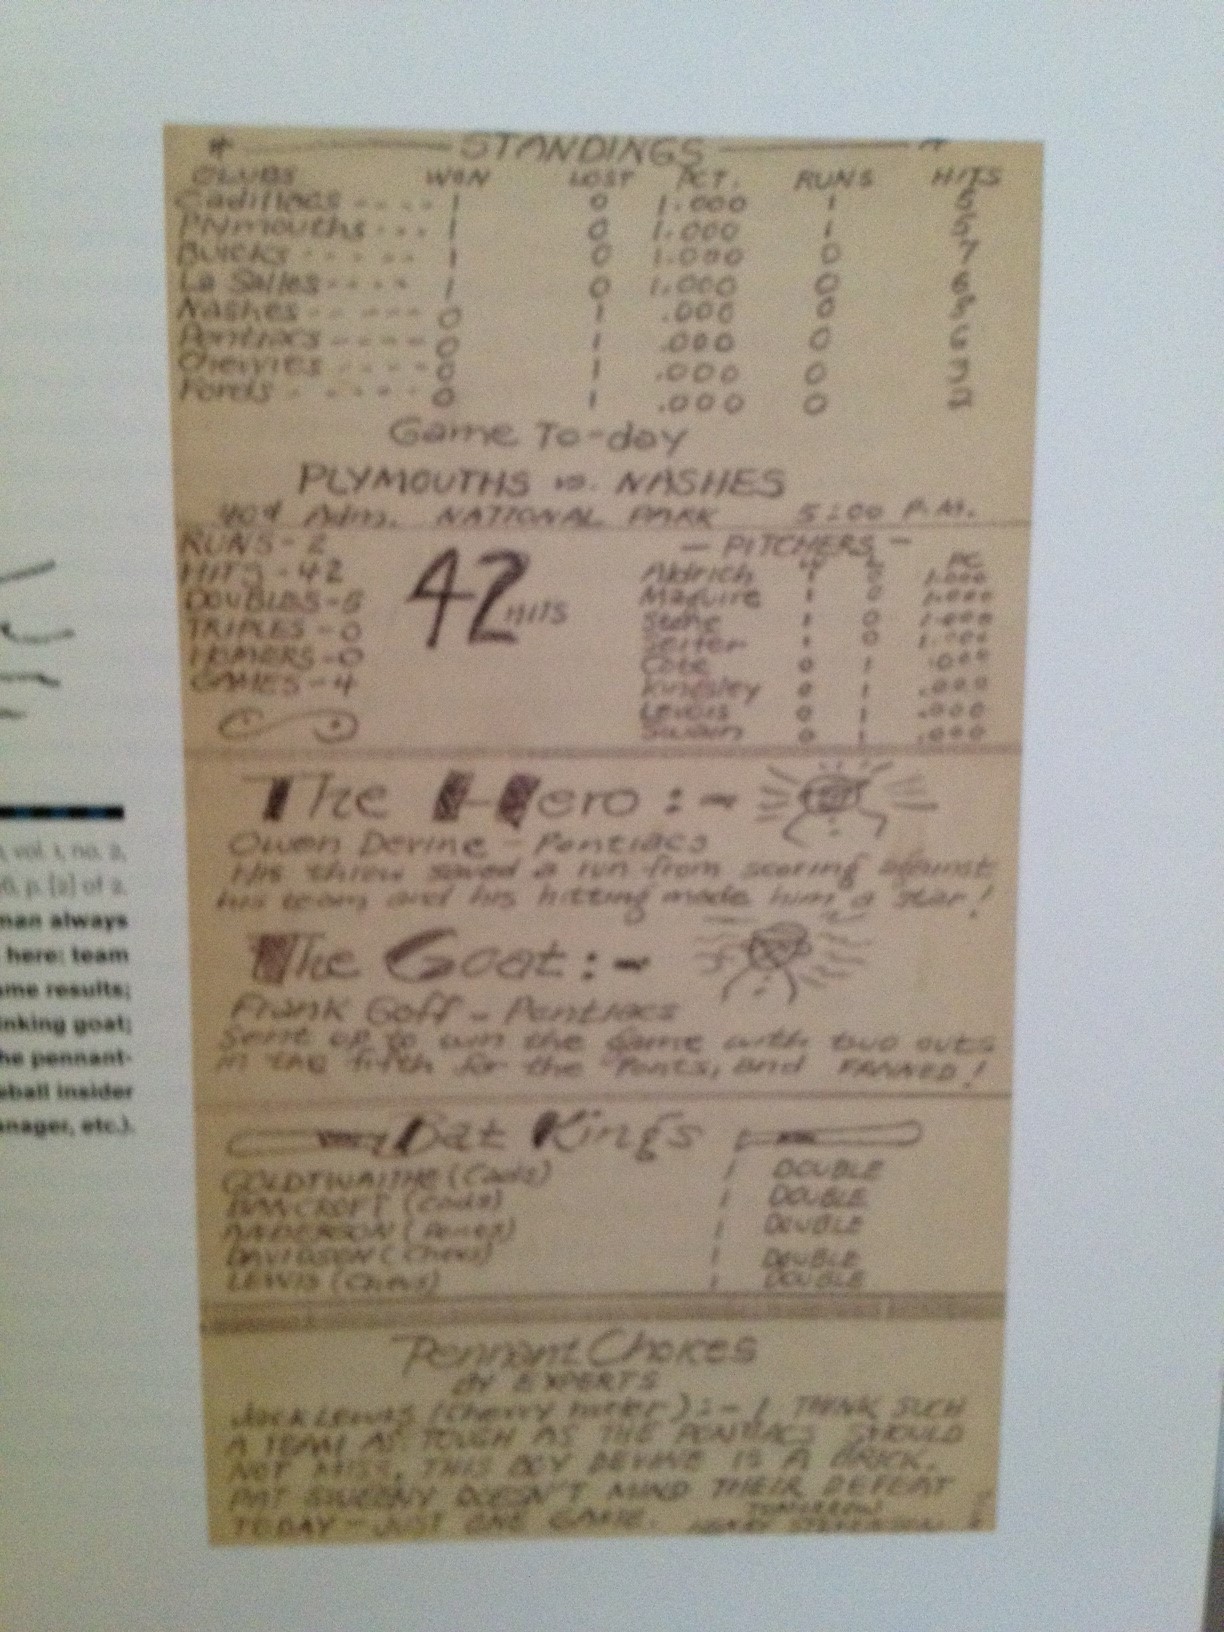 STANDINGS
CLUBS WON LOST PCT. RUNS HITS
Cadillacs ---- 1 0 1.000 1 5
Plymouths --- 1 0 1.000 1 5
Buicks ----- 1 0 1.000 0 7
La Salles ---- 1 0 1.000 0 6
Nashes ------ 0 1 .000 0 8
Pontiacs ----- 0 1 .000 0 6
Chevvies ---- 0 1 .000 0 3
Fords ------ 0 1 .000 0 2
Game To-day
PLYMOUTHS vs. NASHES
40¢ Adm. NATIONAL PARK 5:00 P.M.
RUNS - 2
HITS - 42
DOUBLES - 5
TRIPLES - 0
HOMERS - 0
GAMES - 4
42 HITS
- PITCHERS -
W L PC
Aldrich 1 0 1.000
Maguire 1 0 1.000
Stone 1 0 1.000
Seiter 1 0 1.000
Cote 0 1 .000
Kingsley 0 1 .000
Lewis 0 1 .000
Swain 0 1 .000
The Hero :-
Owen Devine - Pontiacs
His throw saved a run from scoring against
his team and his hitting made him a star!
The Goat :-
Frank Goff - Pontiacs
Sent up to win the game with two outs
in the fifth for the "Ponts, and FANNED!
Bat Kings
GOLDTWAITHE (Cads) 1 DOUBLE
BANCROFT (Cads) 1 DOUBLE
ANDERSON 1 DOUBLE
DAVIDSON (Chevs) 1 DOUBLE
LEWIS (Chevs) 1 DOUBLE
Pennant Choices
BY EXPERTS
Jack Lewis (Chevvy hitter) :- I THINK SUCH
A TEAM AS TOUGH AS THE PONTIACS SHOULD
NOT MISS. THIS BOY DEVINE IS A BRICK.
PAT SWEENY DOESN'T MIND THEIR DEFEAT
TODAY - JUST ONE GAME. TOMORROW
, vol. 1, no. 2,
6, p. [2] of 2.
man always
here: team
ame results;
inking goat;
he pennant-
eball insider
anager, etc.).